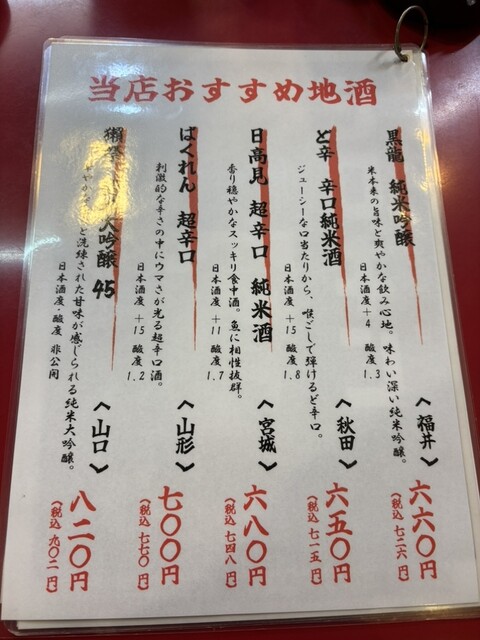 当店おすすめ地酒
黒龍 純米吟醸
米本来の旨味と爽やかな飲み心地。味わい深い純米吟醸。
日本酒度+4 酸度1.3
〈福井〉
六六〇円
(税込 七二六円)
ど辛 辛口純米酒
ジューシーな口当たりから、喉ごしで弾けるど辛口。
日本酒度+15 酸度1.8
〈秋田〉
六五〇円
(税込 七一五円)
日高見 超辛口 純米酒
香り穏やかなスッキリ食中酒。魚に相性抜群。
日本酒度+11 酸度1.7
〈宮城〉
六八〇円
(税込 七四八円)
ばくれん 超辛口
刺激的な辛さの中にウマさが光る超辛口酒。
日本酒度+15 酸度1.2
〈山形〉
七〇〇円
(税込 七七〇円)
獺祭 大吟醸 45
やかな と洗練された甘味が感じられる純米大吟醸。
日本酒度・酸度 非公開
〈山口〉
八二〇円
(税込 九〇二円)